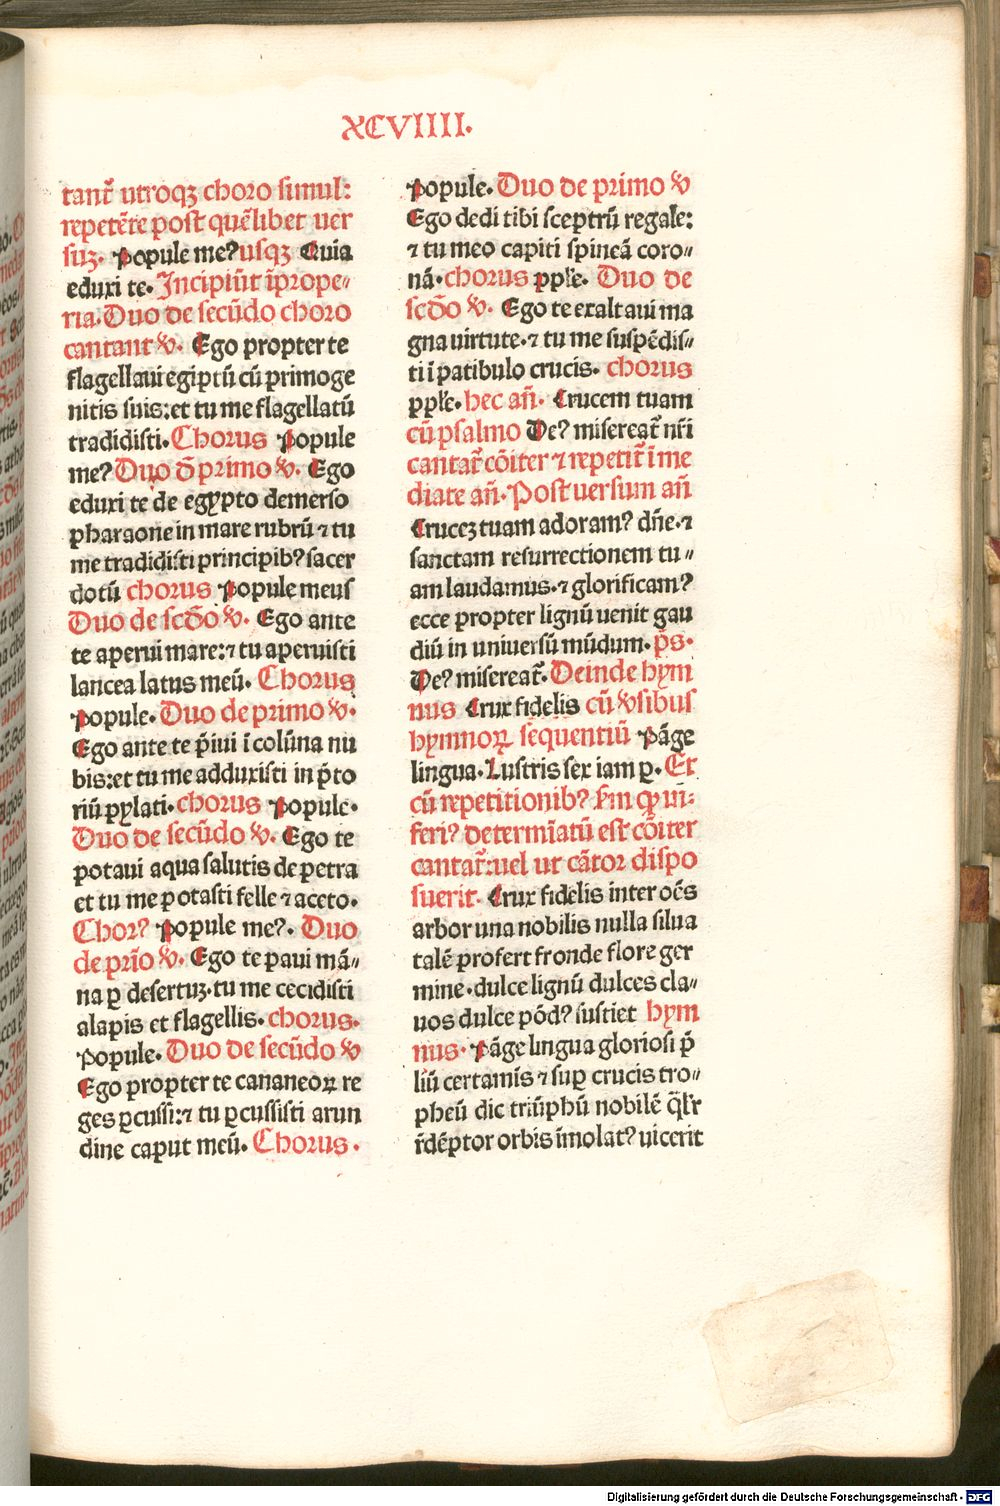 XCVIIII.
tant᷑ utroqꝫ choro simul:
repetēte post quēlibet uer
suꝫ. Popule me? usqꝫ Quia
eduxi te. Incipiūt īprope⸗
ria. Duo de secūdo choro
cantant ℣. Ego propter te
flagellaui egiptū cū primoge
nitis suis: et tu me flagellatū
tradidisti. Chorus Popule
me? Duo d̄ primo ℣. Ego
eduxi te de egypto demerso
pharaone in mare rubrū ⁊ tu
me tradidisti principib? sacer
dotū chorus Popule meus
Duo de scd̄o ℣. Ego ante
te aperui mare: ⁊ tu aperuisti
lancea latus meū. Chorus
Popule. Duo de primo ℣.
Ego ante te p̄iui ī colūna nu
bis: et tu me adduxisti in p̄to
riū pylati. chorus Popule.
Duo de secūdo ℣. Ego te
potaui aqua salutis de petra
et tu me potasti felle ⁊ aceto.
Chor? Popule me?. Duo
de prīo ℣. Ego te paui mā⸗
na ꝑ desertuꝫ. tu me cecidisti
alapis et flagellis. chorus.
Popule. Duo de secūdo ℣
Ego propter te cananeoꝝ re
ges ꝑcussi: ⁊ tu ꝑcussisti arun
dine caput meū. Chorus.
Popule. Duo de primo ℣
Ego dedi tibi sceptrū regale:
⁊ tu meo capiti spineā coro⸗
nā. chorus pp̄le. Duo de
scd̄o ℣. Ego te exaltaui ma
gna uirtute. ⁊ tu me suspēdis⸗
ti ī patibulo crucis. chorus
pp̄le. hec añ. Crucem tuam
cū psalmo De? misereat᷑ nr̄i
cantat᷑ cōiter ⁊ repetit᷑ īme
diate añ. Post uersum añ
Cruceꝫ tuam adoram? dn̄e. ⁊
sanctam resurrectionem tu⸗
am laudamus. ⁊ glorificam?
ecce propter lignū uenit gau
diū in uniuersū mūdum. p̄s.
De? misereat᷑. Deinde hym
nus Crux fidelis cū ℣sibus
hymnoꝝ sequentiū Pāge
lingua. Lustris sex iam ꝑ. Et
cū repetitionib? sm̄ ꝙ ui⸗
feri? determīatū est cōiter
cantat᷑: uel ut cātor dispo
suerit. Crux fidelis inter oēs
arbor una nobilis nulla silua
talē profert fronde flore ger
mine. dulce lignū dulces cla⸗
uos dulce pōd? sustiet hym
nus. Pāge lingua gloriosi p̄
liū certamis ⁊ suꝑ crucis tro⸗
pheū dic triūphū nobilē q̄lr̄
r̄dēptor orbis īmolat? uicerit
Digitalisierung gefördert durch die Deutsche Forschungsgemeinschaft - DFG